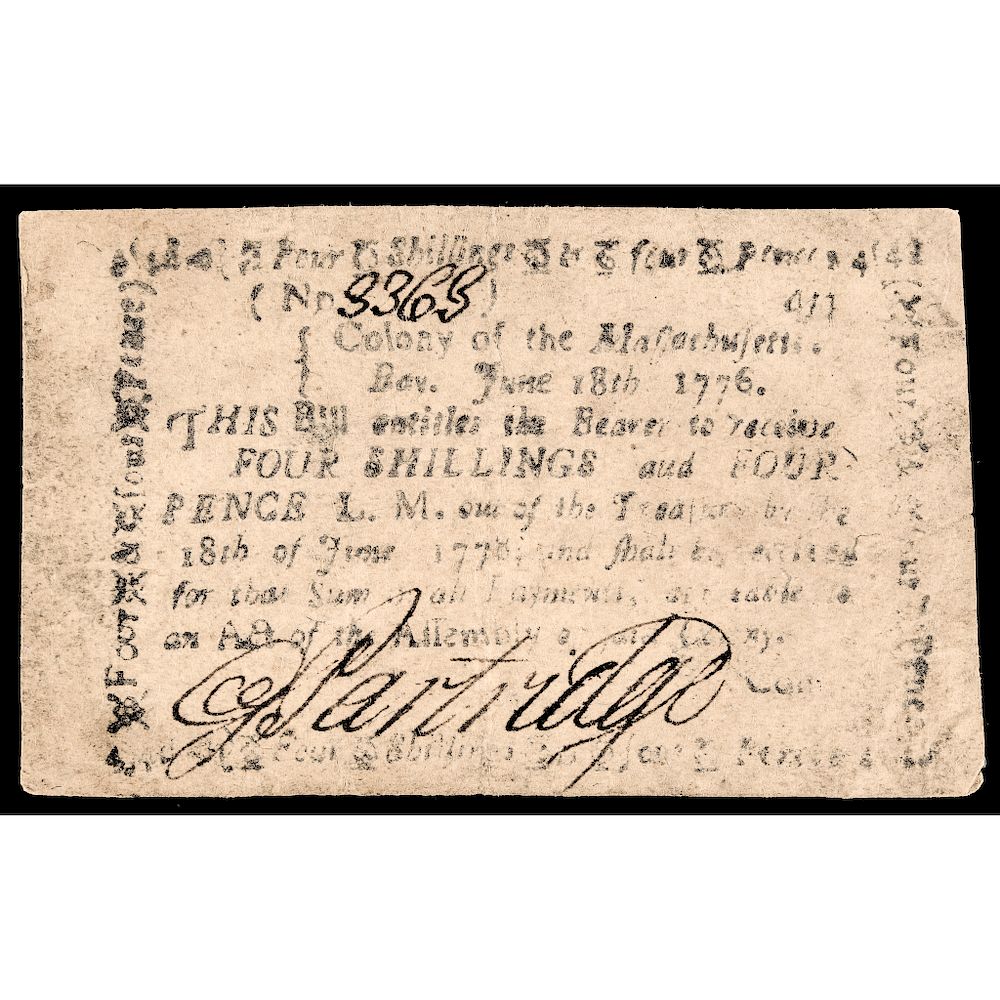 Four Shillings & four Pence
(No 3363) 4/4
Colony of the Massachusetts.
Bay. June 18th 1776.
THIS Bill entitles the Bearer to receive
FOUR SHILLINGS and FOUR
PENCE L. M. out of the Treasury by the
18th of June 1778, and shall be received
for that Sum all Payments, agreeable to
an Act of the Assembly of Colony.
G Partridge Com
Four Shillings four Pence
Four Pence)
Four Pence